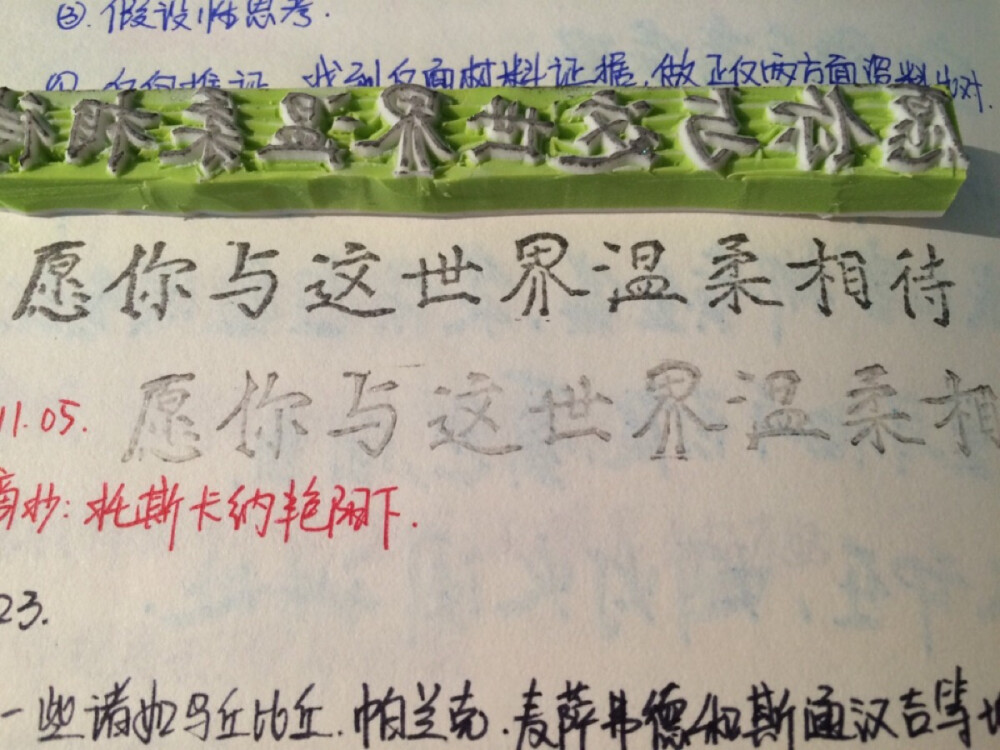 ③.假设性思考.
找到反面材料证据,做正反两方面资料比对.
愿你与这世界温柔相待
愿你与这世界温柔相待
愿你与这世界温柔相
11.05.
摘抄:托斯卡纳艳阳下.
23.
一些诸如马丘比丘.帕兰克.麦萨弗德和斯通汉吉等